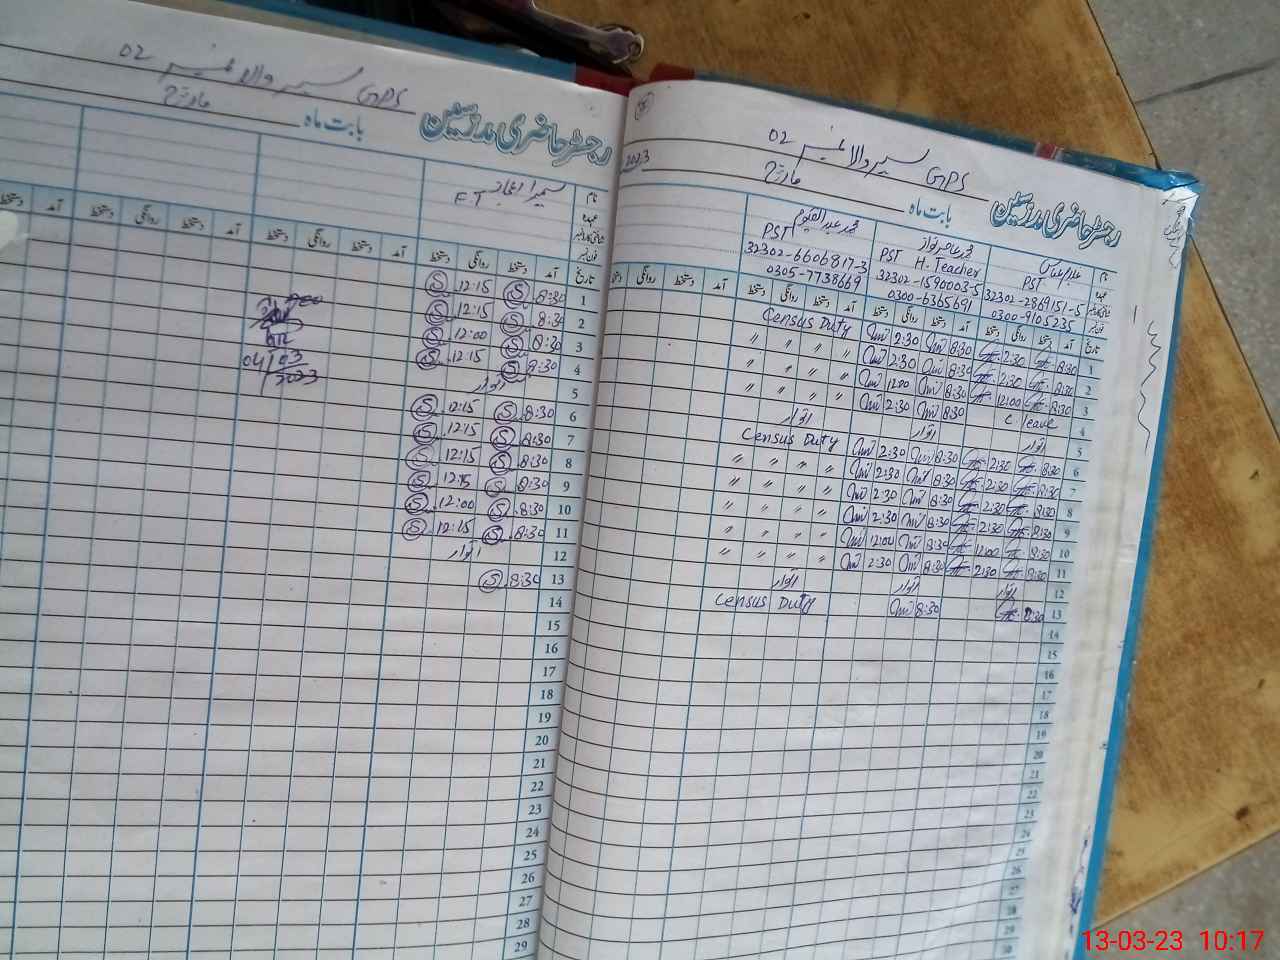 رجسٹر حاضری مدرسین
GPS سمیر والا نمبر 02
بابت ماہ مارچ 2023
نام
عہدہ
شناختی کارڈ نمبر
فون نمبر
PST
32302-2869151-5
0300-9105235
محمد ناصر نواز
PST H. Teacher
32302-1590003-5
0300-6365691
محمد عبدالقیوم
PST
32302-6606817-3
0305-7738669
تاریخ آمد دستخط روانگی دستخط آمد دستخط روانگی دستخط آمد دستخط روانگی دستخط آمد دستخط
1 8:30 2:30 8:30 2:30 Census Duty
2 8:30 2:30 8:30 2:30 〃 〃 〃 〃
3 8:30 12:00 8:30 12:00 〃 〃 〃 〃
4 C leave 8:30 2:30 〃 〃 〃 〃
5 اتوار اتوار اتوار
6 8:30 2:30 8:30 2:30 Census Duty
7 8:30 2:30 8:30 2:30 〃 〃 〃 〃
8 8:30 2:30 8:30 2:30 〃 〃 〃 〃
9 8:30 2:30 8:30 2:30 〃 〃 〃 〃
10 8:30 12:00 8:30 12:00 〃 〃 〃 〃
11 8:30 2:30 8:30 2:30 〃 〃 〃 〃
12 اتوار اتوار اتوار
13 8:30 8:30 Census Duty
14
15
16
17
18
19
20
21
22
23
24
25
26
27
28
29
30
رجسٹر حاضری مدرسین
GPS سمیر والا نمبر 02
بابت ماہ مارچ
نام
عہدہ
شناختی کارڈ نمبر
فون نمبر
ET
تاریخ آمد دستخط روانگی دستخط آمد دستخط روانگی دستخط آمد دستخط روانگی دستخط آمد دستخط
1 8:30 S 12:15 S
2 8:30 S 12:15 S
3 8:30 S 12:00 S
4 8:30 S 12:15 S
5 اتوار
6 8:30 S 12:15 S
7 8:30 S 12:15 S
8 8:30 S 12:15 S
9 8:30 S 12:15 S
10 8:30 S 12:00 S
11 8:30 S 12:15 S
12 اتوار
13 8:30 S
14
15
16
17
18
19
20
21
22
23
24
25
26
27
28
29
04/03
2023
13-03-23 10:17